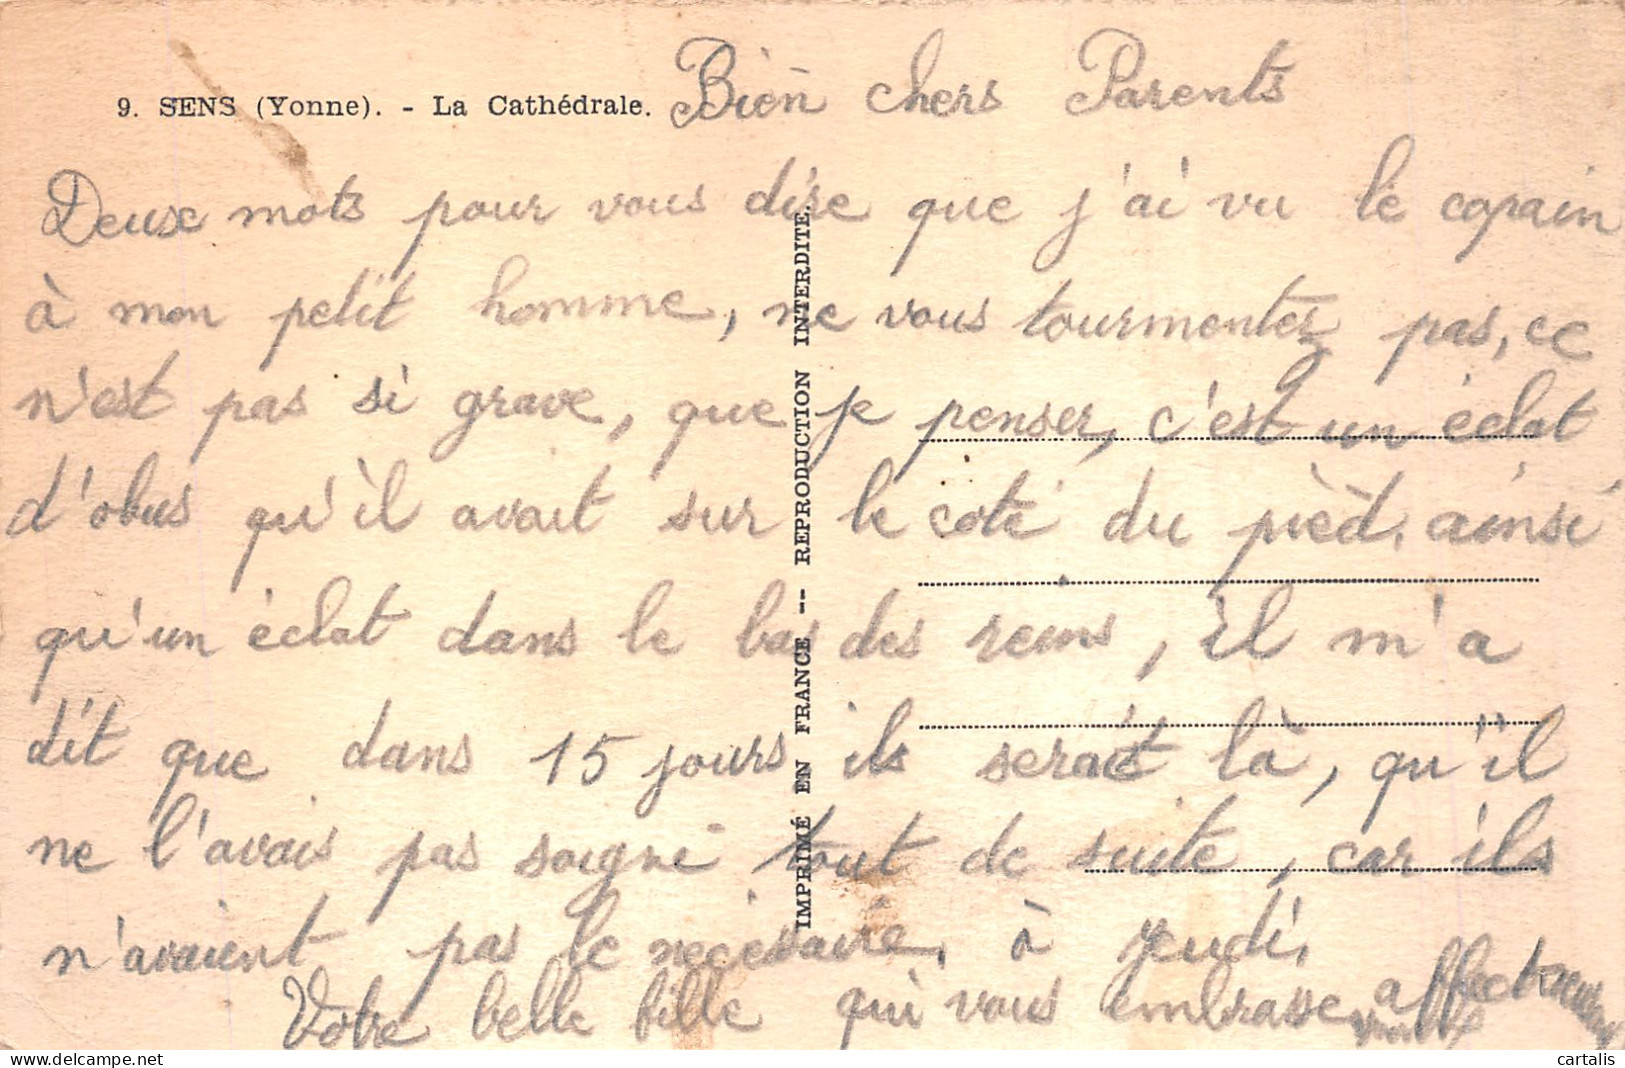 9. SENS (Yonne). - La Cathédrale.
Bien chers Parents
Deuxe mots pour vous dire que j'ai vu le copain
à mon petit homme, ne vous tourmentez pas, ce
n'est pas si grave, que je penser, c'est un éclat
d'obus qu'il avait sur le coté du pied, ainsi
qu'un éclat dans le bas des reins, il m'a
dit que dans 15 jours ils serait là, qu'il
ne l'avais pas soigné tout de suite, car ils
n'avaient pas le necessaire, à jeudi,
Votre belle fille qui vous embrasse
IMPRIMÉ EN FRANCE -- REPRODUCTION INTERDITE.
cartalis